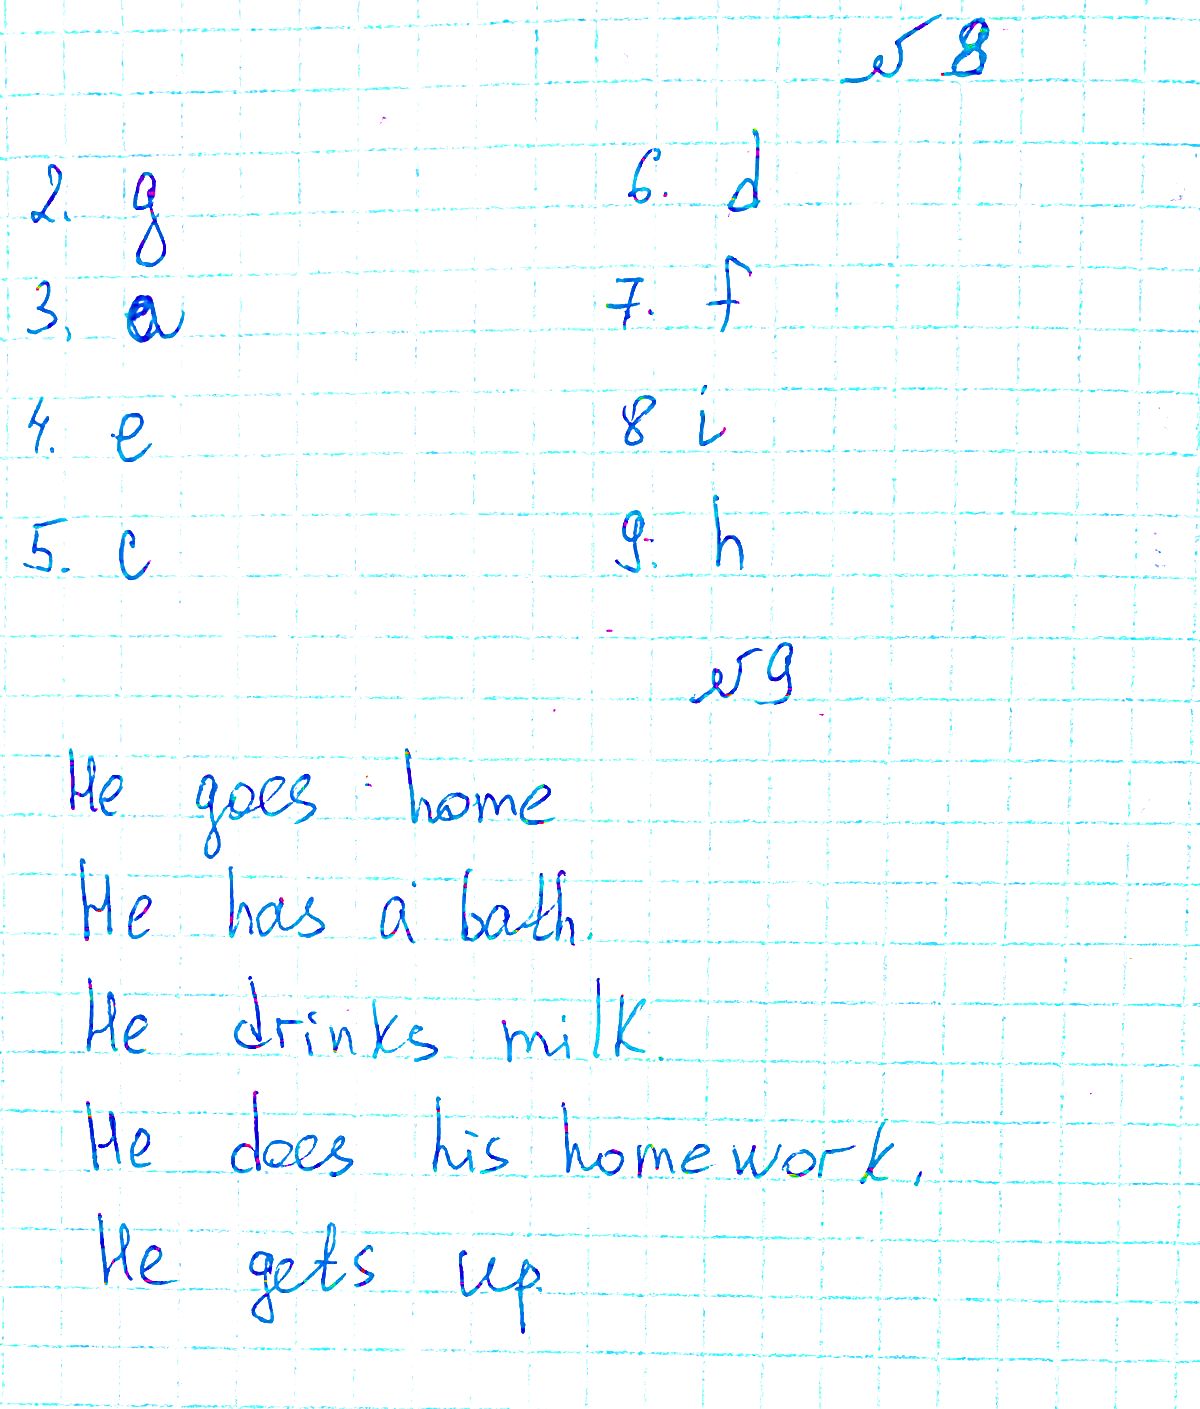 № 8
2. g 6. d
3. a 7. f
4. e 8 i
5. c 9. h
№ 9
He goes home
He has a bath.
He drinks milk.
He does his homework.
He gets up.